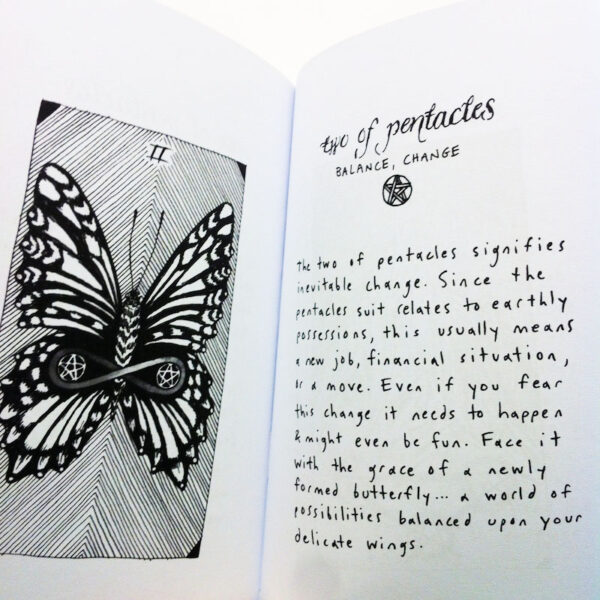 II
two of pentacles
BALANCE, CHANGE
the two of pentacles signifies
inevitable change. Since the
pentacles suit relates to earthly
possessions, this usually means
a new job, financial situation,
or a move. Even if you fear
this change it needs to happen
& might even be fun. Face it
with the grace of a newly
formed butterfly... a world of
possibilities balanced upon your
delicate wings.